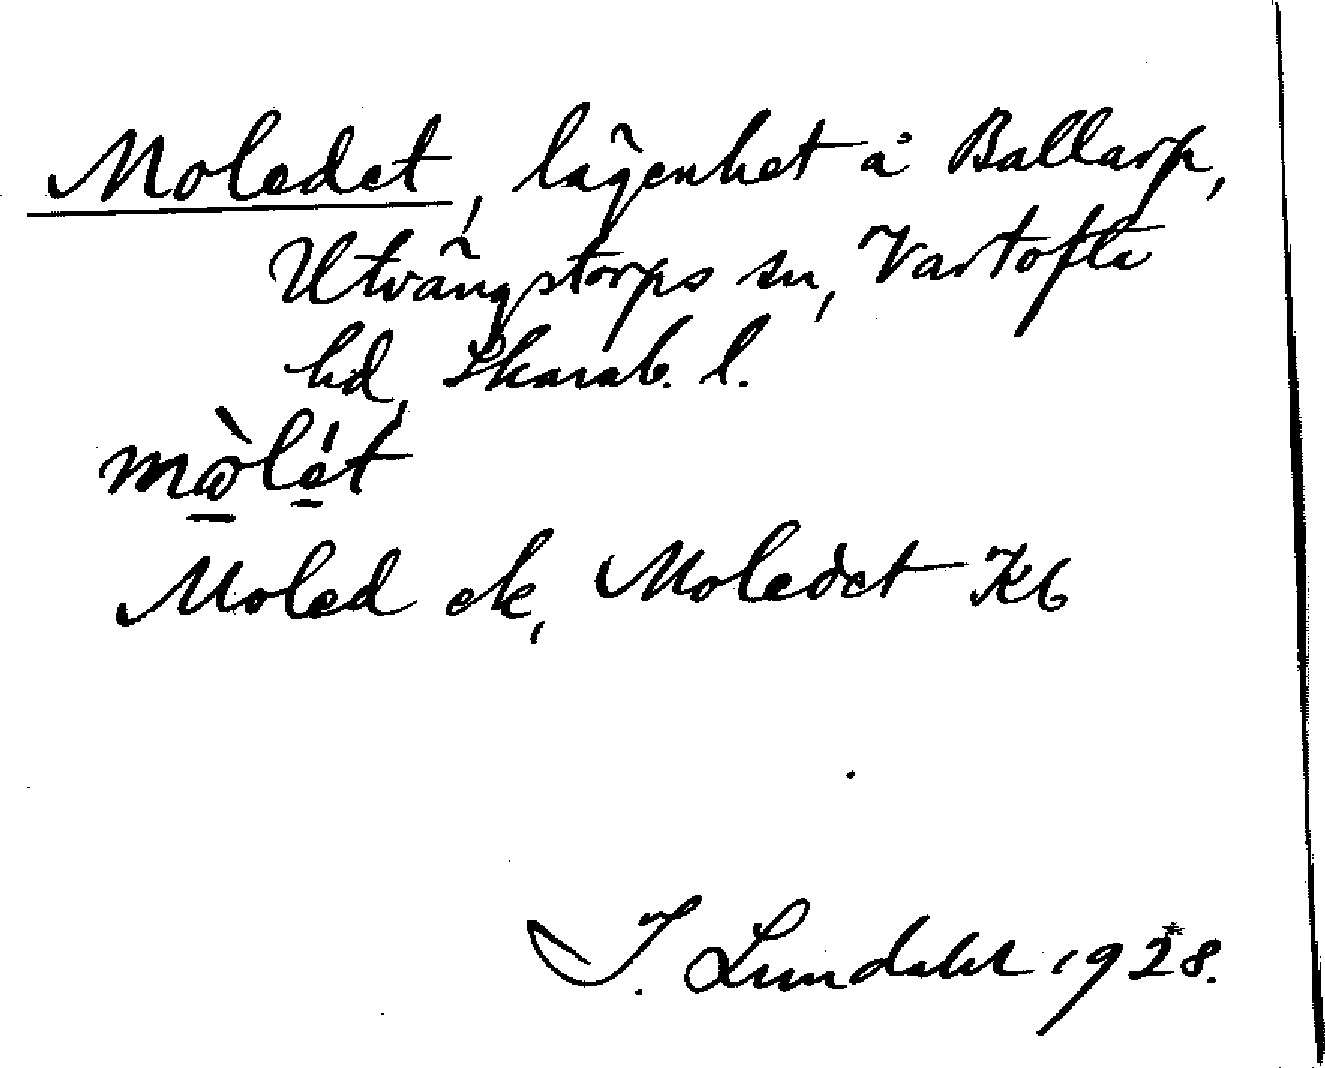 Moledet, lägenhet å Ballarp,
Utvängstorps sn, Vartofta
hd, Skarab. l.
mὼlét
Moled ek, Moledet Kb
I. Lundahl 1928.